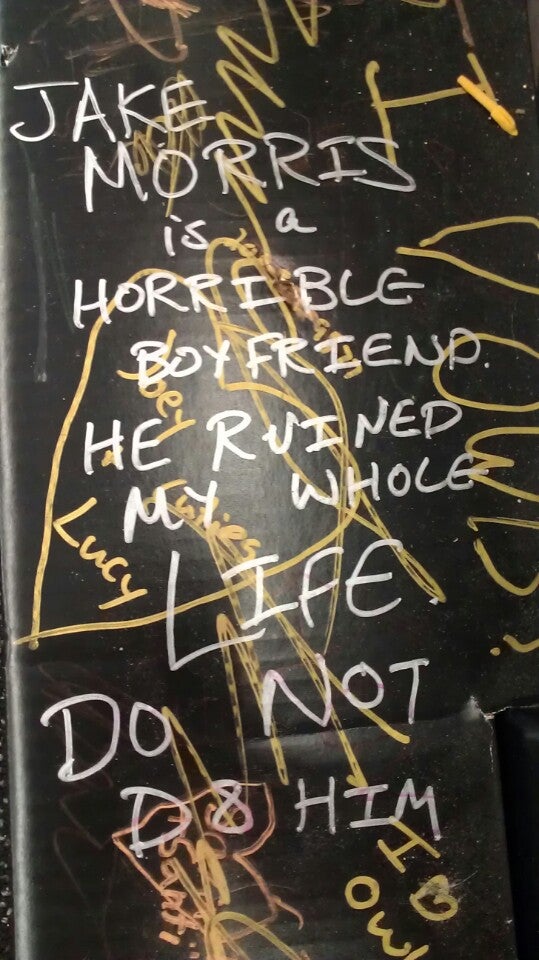 JAKE
MORRIS
is a
HORRIBLE
BOYFRIEND.
HE RUINED
MY WHOLE
LIFE.
DO NOT
D8 HIM
Lucy
I
YOU
I ♡
owl